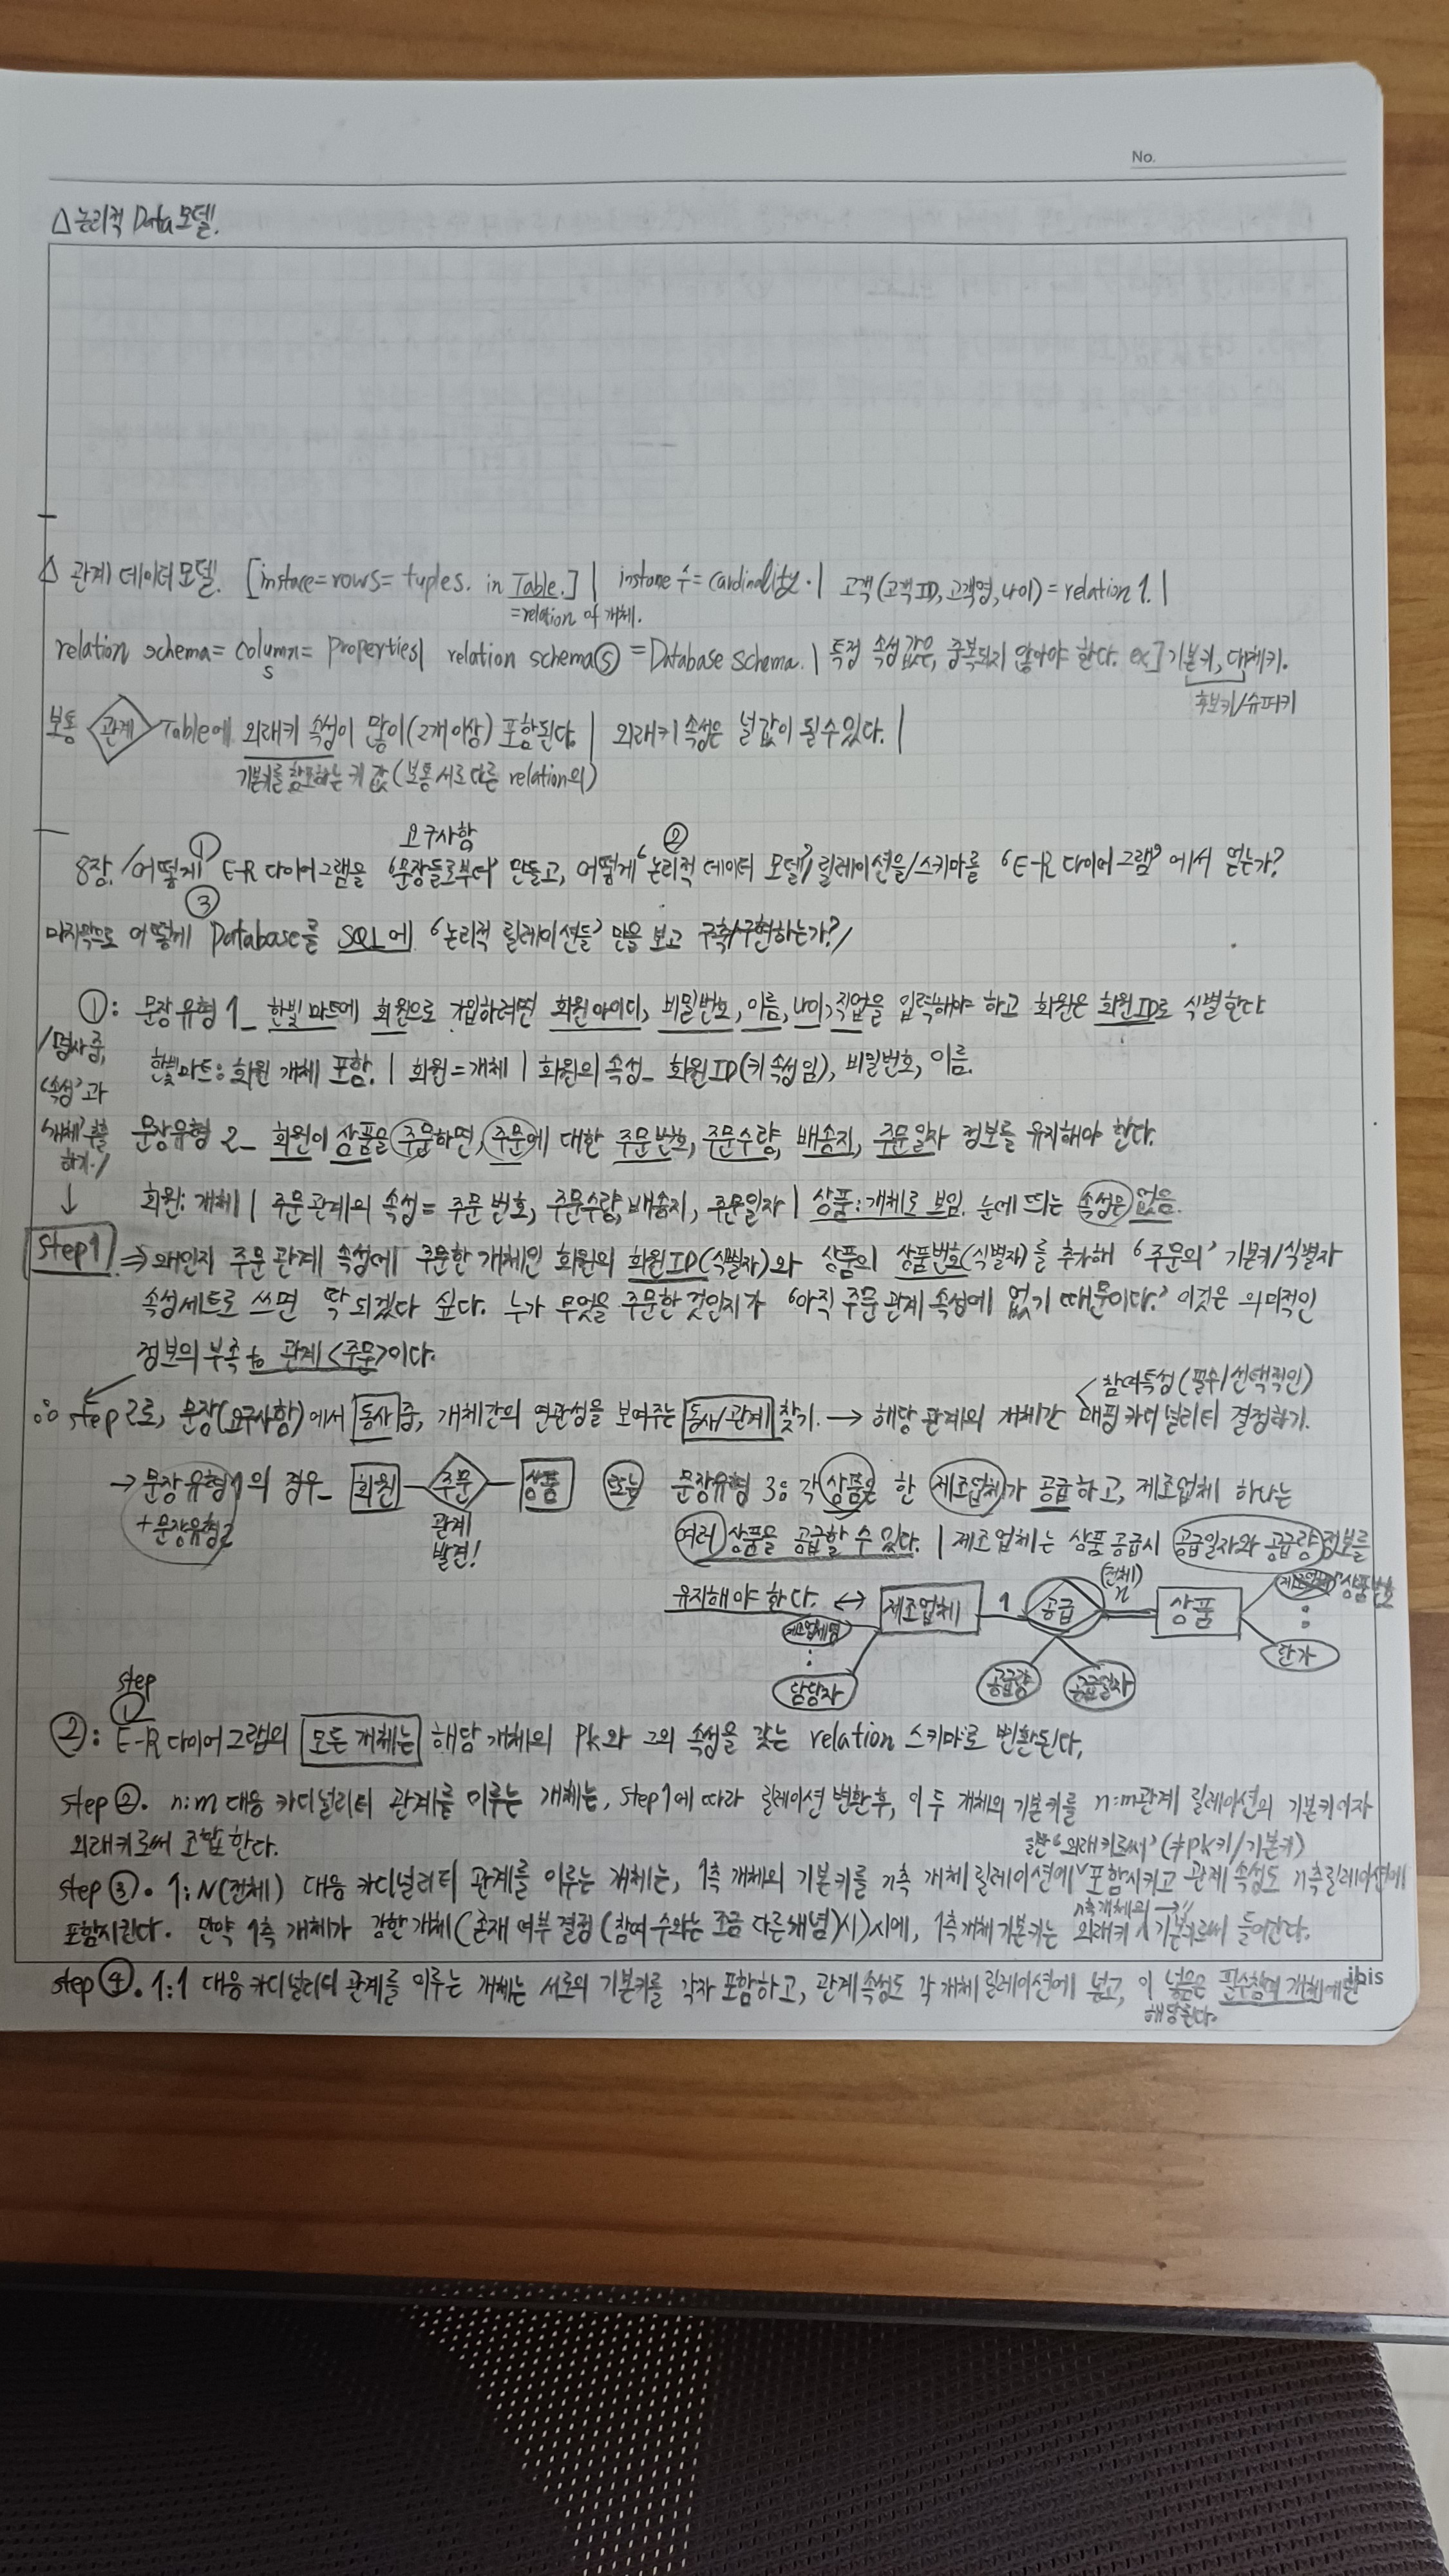 No.
△ 논리적 Data 모델.
△ 관계 데이터 모델. [instace=rows= tuples. in Table.] | instane 수 = cardinality. | 고객(고객ID, 고객명, 나이) = relation 1. |
=relation of 개체.
relation schema= column= Properties| relation schemaⓢ = Database schema. | 특정 속성값은, 중복되지 않아야 한다. ex] 기본키, 대체키.
s
후보키/슈퍼키
보통 관계 Table에 외래키 속성이 많이(2개이상) 포함된다. | 외래키 속성은 널값이 될 수 있다. |
기본키를 참조하는 키 값(보통 서로 다른 relation의)
① 요구사항 ②
8장. /어떻게 E-R 다이어그램을 '문장들로부터' 만들고, 어떻게 '논리적 데이터 모델'/릴레이션을/스키마를 'E-R 다이어그램'에서 얻는가?
③
마지막으로 어떻게 Database를 SQL에 '논리적 릴레이션들' 만을 보고 구축/구현하는가?/
①: 문장 유형 1_ 한빛 마트에 회원으로 가입하려면 회원아이디, 비밀번호, 이름, 나이, 직업을 입력해야 하고 회원은 회원ID로 식별한다
/명사 중,
한빛마트: 회원 개체 포함. | 회원=개체 | 회원의 속성_ 회원ID(키 속성임), 비밀번호, 이름.
'속성'과
'개체' 추출
하기./
↓
문장유형 2_ 회원이 상품을 주문하면, 주문에 대한 주문번호, 주문수량, 배송지, 주문일자 정보를 유지해야 한다.
회원: 개체 | 주문 관계의 속성= 주문 번호, 주문수량, 배송지, 주문일자 | 상품: 개체로 보임. 눈에 띄는 속성은 없음.
Step 1 ⇒ 왜인지 주문 관계 속성에 주문한 개체인 회원의 회원ID(식별자)와 상품의 상품번호(식별자)를 추가해 '주문의' 기본키/식별자
속성세트로 쓰면 딱 되겠다 싶다. 누가 무엇을 주문한 것인지가 '아직 주문 관계 속성에 없기 때문이다.' 이것은 의미적인
정보의 부족 to 관계<주문>이다.
참여특성(필수/선택적인)
∴ step 2로, 문장(요구사항)에서 동사 중, 개체간의 연관성을 보여주는 동사/관계 찾기. → 해당 관계의 개체간 매핑 카디널리티 결정하기.
→ 문장유형1의 경우_ 회원 주문 상품 또는 문장유형 3: 각 상품은 한 제조업체가 공급하고, 제조업체 하나는
+ 문장유형2
관계
발견!
여러 상품을 공급할 수 있다. | 제조업체는 상품 공급시 공급일자와 공급량 정보를
유지해야 한다. ↔ 제조업체 1 공급 (전체) n 상품
상품번호
제조업체명
:
담당자
공급량
공급일자
:
단가
step
①
②: E-R 다이어그램의 모든 개체는 해당 개체의 Pk와 그의 속성을 갖는 relation 스키마로 변환된다.
step ②. n:m 대응 카디널리티 관계를 이루는 개체는, step1에 따라 릴레이션 변환후, 이 두 개체의 기본키를 n:m관계 릴레이션의 기본키이자
외래키로써 조합 한다.
'외래키로써' (≠pk키/기본키)
step ③. 1:N(전체) 대응 카디널리티 관계를 이루는 개체는, 1측 개체의 기본키를 n측 개체 릴레이션에 포함시키고 관계 속성도 n측릴레이션에
n측 개체의 →
포함시킨다. 만약 1측 개체가 강한 개체(존재 여부 결정(참여 수와는 조금 다른 개념)시)시에, 1측개체 기본키는 외래키 기본키로써 들어간다.
step ④. 1:1 대응 카디널리티 관계를 이루는 개체는 서로의 기본키를 각자 포함하고, 관계속성도 각 개체 릴레이션에 넣고, 이 넣음은 필수참여 개체에만
해당된다.